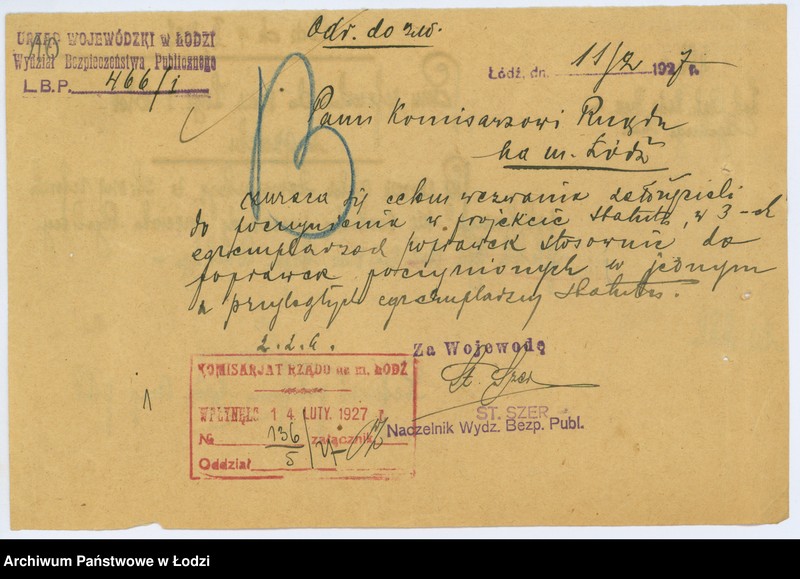 Odr. do
URZĄD WOJEWÓDZKI w ŁODZI
Wydział Bezpieczeństwa Publicznego
L.B.P. 466/i
Łódź, dn. 11/2 1927 r.
Panu Komisarzowi Rządu
na m. Łódź
zwraca się celem wezwania założycieli
do poczynienia w projekcie statutu, w 3-ch
egzemplarzach poprawek stosownie do
poprawek poczynionych w jednym
z przyległych egzemplarzy statutu.
Za Wojewodę
St. Szer
ST. SZER
Naczelnik Wydz. Bezp. Publ.
KOMISARJAT RZĄDU na m. ŁÓDŹ
WPŁYNĘŁO 14 LUTY. 1927 r.
№ 136/5 załącznik
Oddział
Archiwum Państwowe w Łodzi